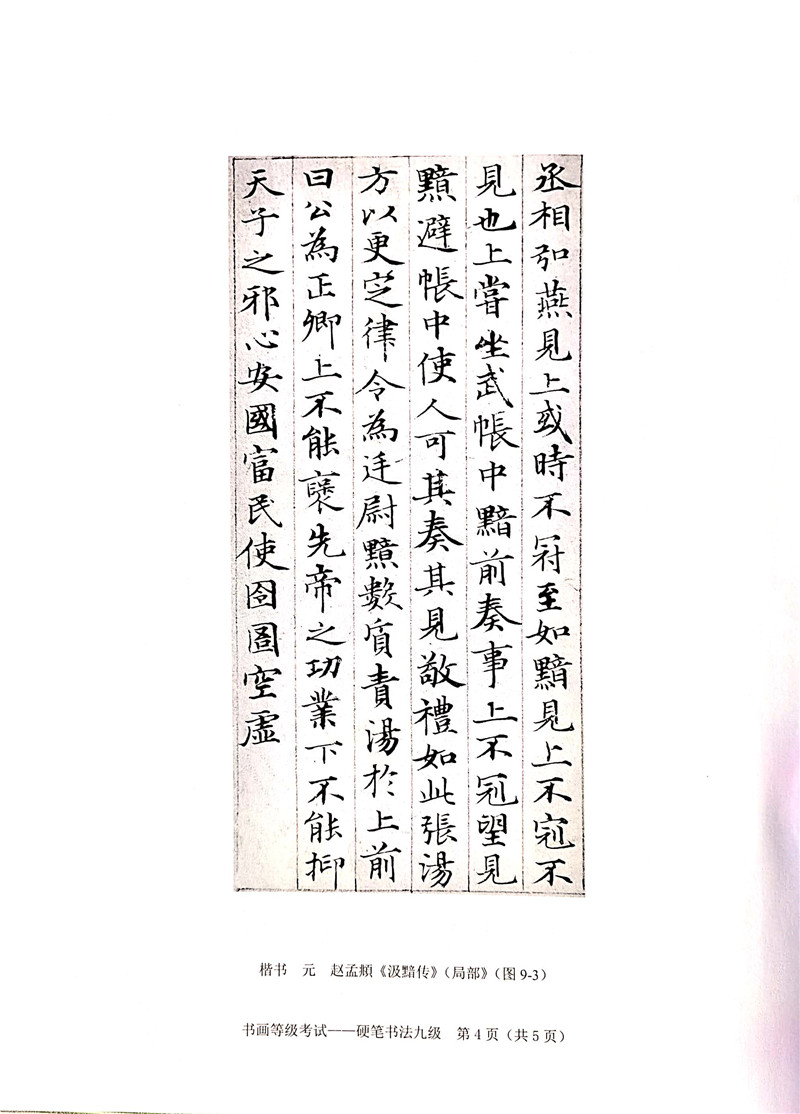 丞相弘燕見上或時不冠至如黯見上不冠不
見也上嘗坐武帳中黯前奏事上不冠望見
黯避帳中使人可其奏其見敬禮如此張湯
方以更定律令為廷尉黯數質責湯於上前
曰公為正卿上不能褒先帝之功業下不能抑
天子之邪心安國富民使囹圄空虛
楷书 元 赵孟頫《汲黯传》（局部》（图9-3）
书画等级考试——硬笔书法九级 第4页（共5页）